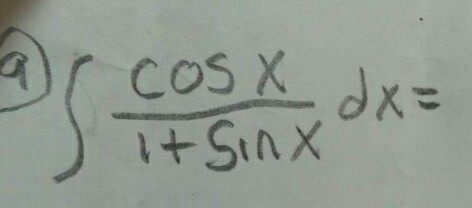 a) ∫ cos x / 1 + Sin x dx =